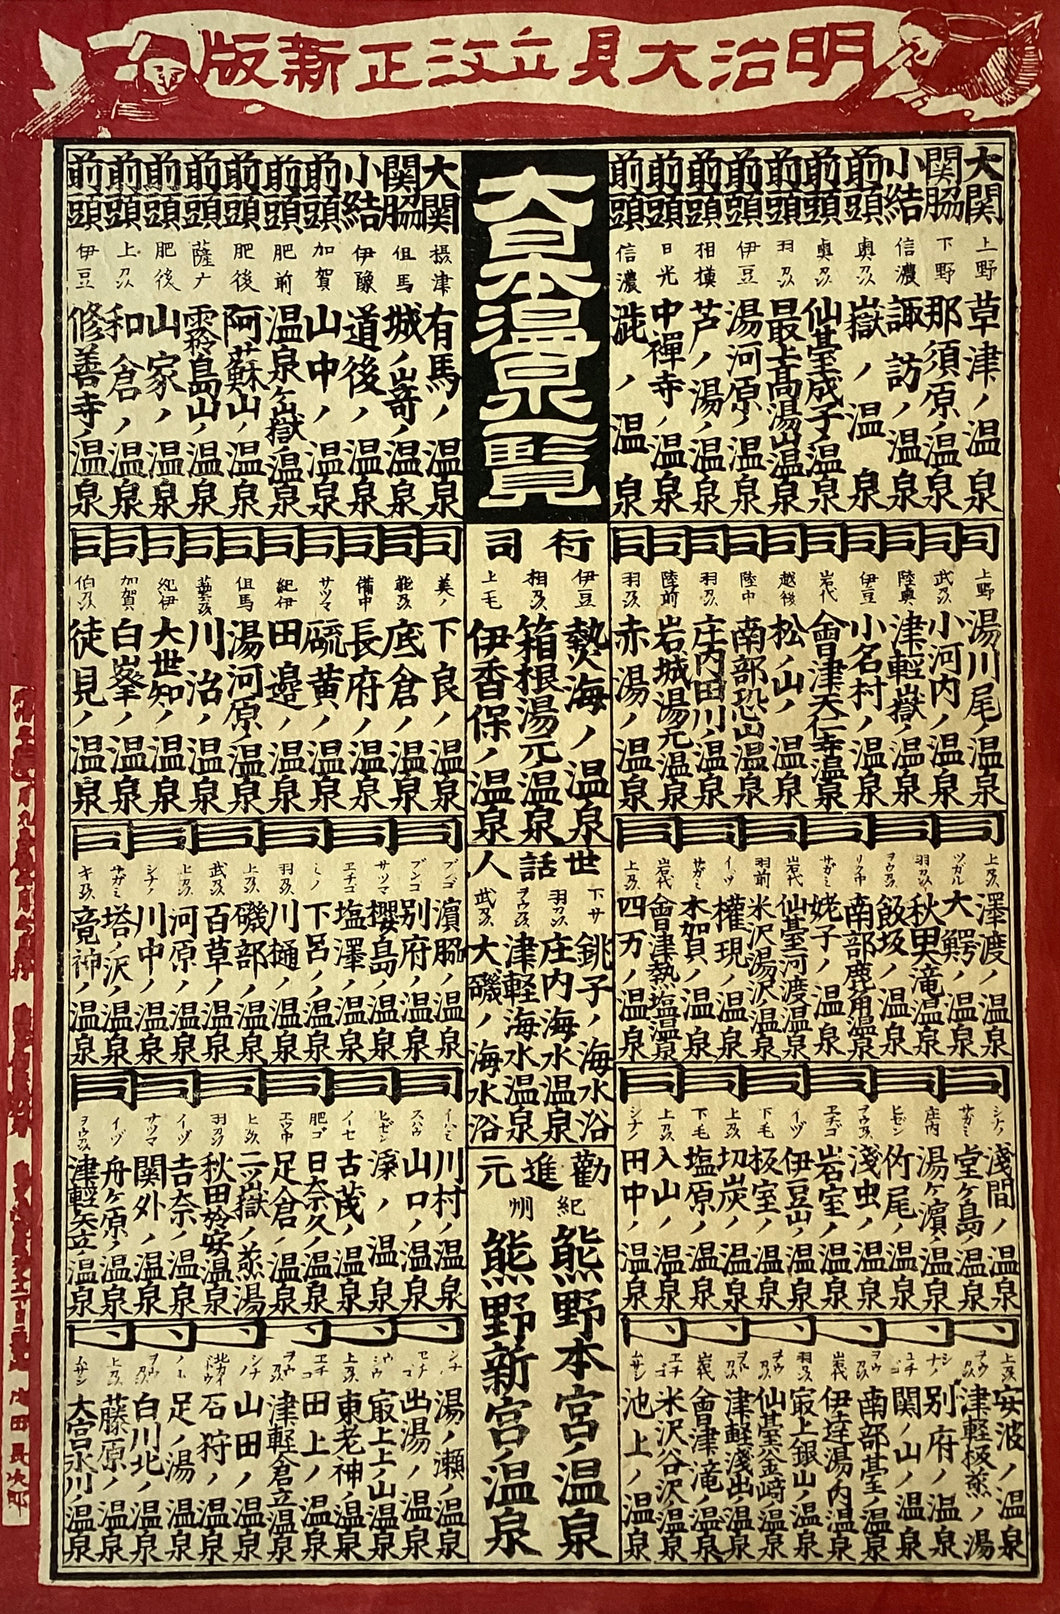 明治大見立改正新版
大日本温泉一覧
大関 上野 草津ノ温泉
関脇 下野 那須原ノ温泉
小結 信濃 諏訪ノ温泉
前頭 奥刕 嶽ノ温泉
前頭 奥刕 仙䑓成子ノ温泉
前頭 羽刕 最上高湯山温泉
前頭 伊豆 湯河原ノ温泉
前頭 相模 芦ノ湯ノ温泉
前頭 日光 中禅寺ノ温泉
前頭 信濃 渋ノ温泉
同 上野 湯川尾ノ温泉
同 武刕 小河内ノ温泉
同 陸奥 津軽嶽ノ温泉
同 伊豆 小名村ノ温泉
同 岩代 會津天仁寺温泉
同 越後 松ノ山ノ温泉
同 陸中 南部恐山温泉
同 羽刕 庄内田川ノ温泉
同 陸前 岩城湯元温泉
同 羽刕 赤湯ノ温泉
同 上刕 澤渡ノ温泉
ツガル 大鰐ノ温泉
羽刕 秋田滝ノ温泉
ヲウ刕 飯坂ノ温泉
リク中 南部鹿角温泉
サガミ 姥子ノ温泉
岩代 仙䑓河渡温泉
羽前 米沢湯沢温泉
イヅ 権現ノ温泉
サガミ 木賀ノ温泉
岩代 會津熱塩温泉
上刕 四万ノ温泉
同 シナノ 浅間ノ温泉
サガミ 堂ヶ島ノ温泉
庄内 湯ヶ濱ノ温泉
ヒゼン 竹尾ノ温泉
ヲウ刕 浅虫ノ温泉
エチゴ 岩室ノ温泉
イヅ 伊豆山ノ温泉
下毛 板室ノ温泉
上刕 切炭ノ温泉
下毛 塩原ノ温泉
上刕 入山ノ温泉
シナノ 田中ノ温泉
同 上刕 安波ノ温泉
ヲウ刕 津軽板煎ノ湯
シナノ 別府ノ温泉
エチゴ 関ノ山ノ温泉
ヲウ刕 南部䑓ノ温泉
岩代 伊達湯ノ内温泉
羽刕 㝡上銀山ノ温泉
ヲウ刕 仙䑓金﨑温泉
ヲウ刕 津軽浅出ノ温泉
岩代 會津滝ノ温泉
羽刕 米沢谷沢ノ温泉
ムサシ 池上ノ温泉
行司
伊豆 熱海ノ温泉
相刕 箱根湯元温泉
上毛 伊香保ノ温泉
世話人
下サ 銚子ノ海水浴
羽刕 庄内海水温泉
ヲウ刕 津軽海水温泉
武刕 大磯ノ海水浴
勧進元
紀州
熊野本宮ノ温泉
熊野新宮ノ温泉
大関 摂津 有馬ノ温泉
関脇 但馬 城ノ嵜ノ温泉
小結 伊豫 道後ノ温泉
前頭 加賀 山中ノ温泉
前頭 肥前 温泉ヶ嶽ノ温泉
前頭 肥後 阿蘇山ノ温泉
前頭 薩广 霧島山ノ温泉
前頭 肥後 山家ノ温泉
前頭 上刕 和倉ノ温泉
前頭 伊豆 修善寺ノ温泉
同 美ノ 下良ノ温泉
同 能刕 底倉ノ温泉
同 備中 長府ノ温泉
同 サツマ 硫黄ノ温泉
同 紀伊 田邉ノ温泉
同 但馬 湯河原ノ温泉
同 川治ノ温泉
同 紀伊 大世知ノ温泉
同 加賀 白峯ノ温泉
同 伯刕 徒見ノ温泉
同 ブンゴ 濱脇ノ温泉
ブンゴ 別府ノ温泉
サツマ 櫻島ノ温泉
エチゴ 塩澤ノ温泉
ミノ 下呂ノ温泉
羽刕 川樋ノ温泉
上刕 磯部ノ温泉
武刕 百草ノ温泉
上刕 河原ノ温泉
シナノ 川中ノ温泉
サガミ 塔ノ沢ノ温泉
キ刕 竜神ノ温泉
同 川村ノ温泉
スハウ 山口ノ温泉
ヒゼン 温泉
イセ 古茂ノ温泉
肥ゴ 日奈久ノ温泉
エツ中 足倉ノ温泉
ヒ刕 二ツ嶽ノ蒸湯
羽刕 秋田於安温泉
イヅ 吉奈ノ温泉
サツマ 関外ノ温泉
イヅ 舟ヶ原ノ温泉
ヲウ刕 津軽矢立ノ温泉
同 シナノ 湯ノ瀬ノ温泉
出湯ノ温泉
㝡上上ノ山温泉
上刕 東老神ノ温泉
エチゴ 田上ノ温泉
ヲウ刕 津軽倉立温泉
シナノ 山田ノ温泉
石狩ノ温泉
足ノ湯温泉
ヲウ刕 白川北ノ温泉
上刕 藤原ノ温泉
ムサシ 大宮氷川ノ温泉